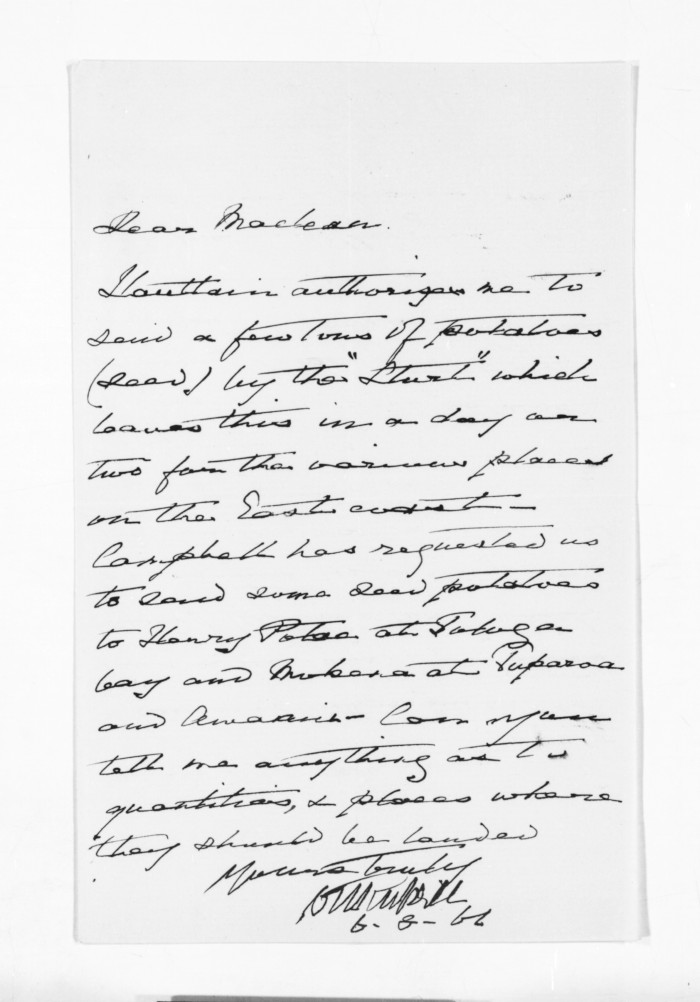 Dear Maclean.
Haultain authorizes me to
send a few tons of potatoes
(seed) by the "Sturt" which
leaves this in a day or
two for the various places
on the East coast —
Campbell has requested us
to send some seed potatoes
to Henry Potae at Tologa
bay and Mokena at Tuparoa
and Awanui — Can you
tell me anything as to
quantities, & places where
they should be landed
Yours truly
6-8-66